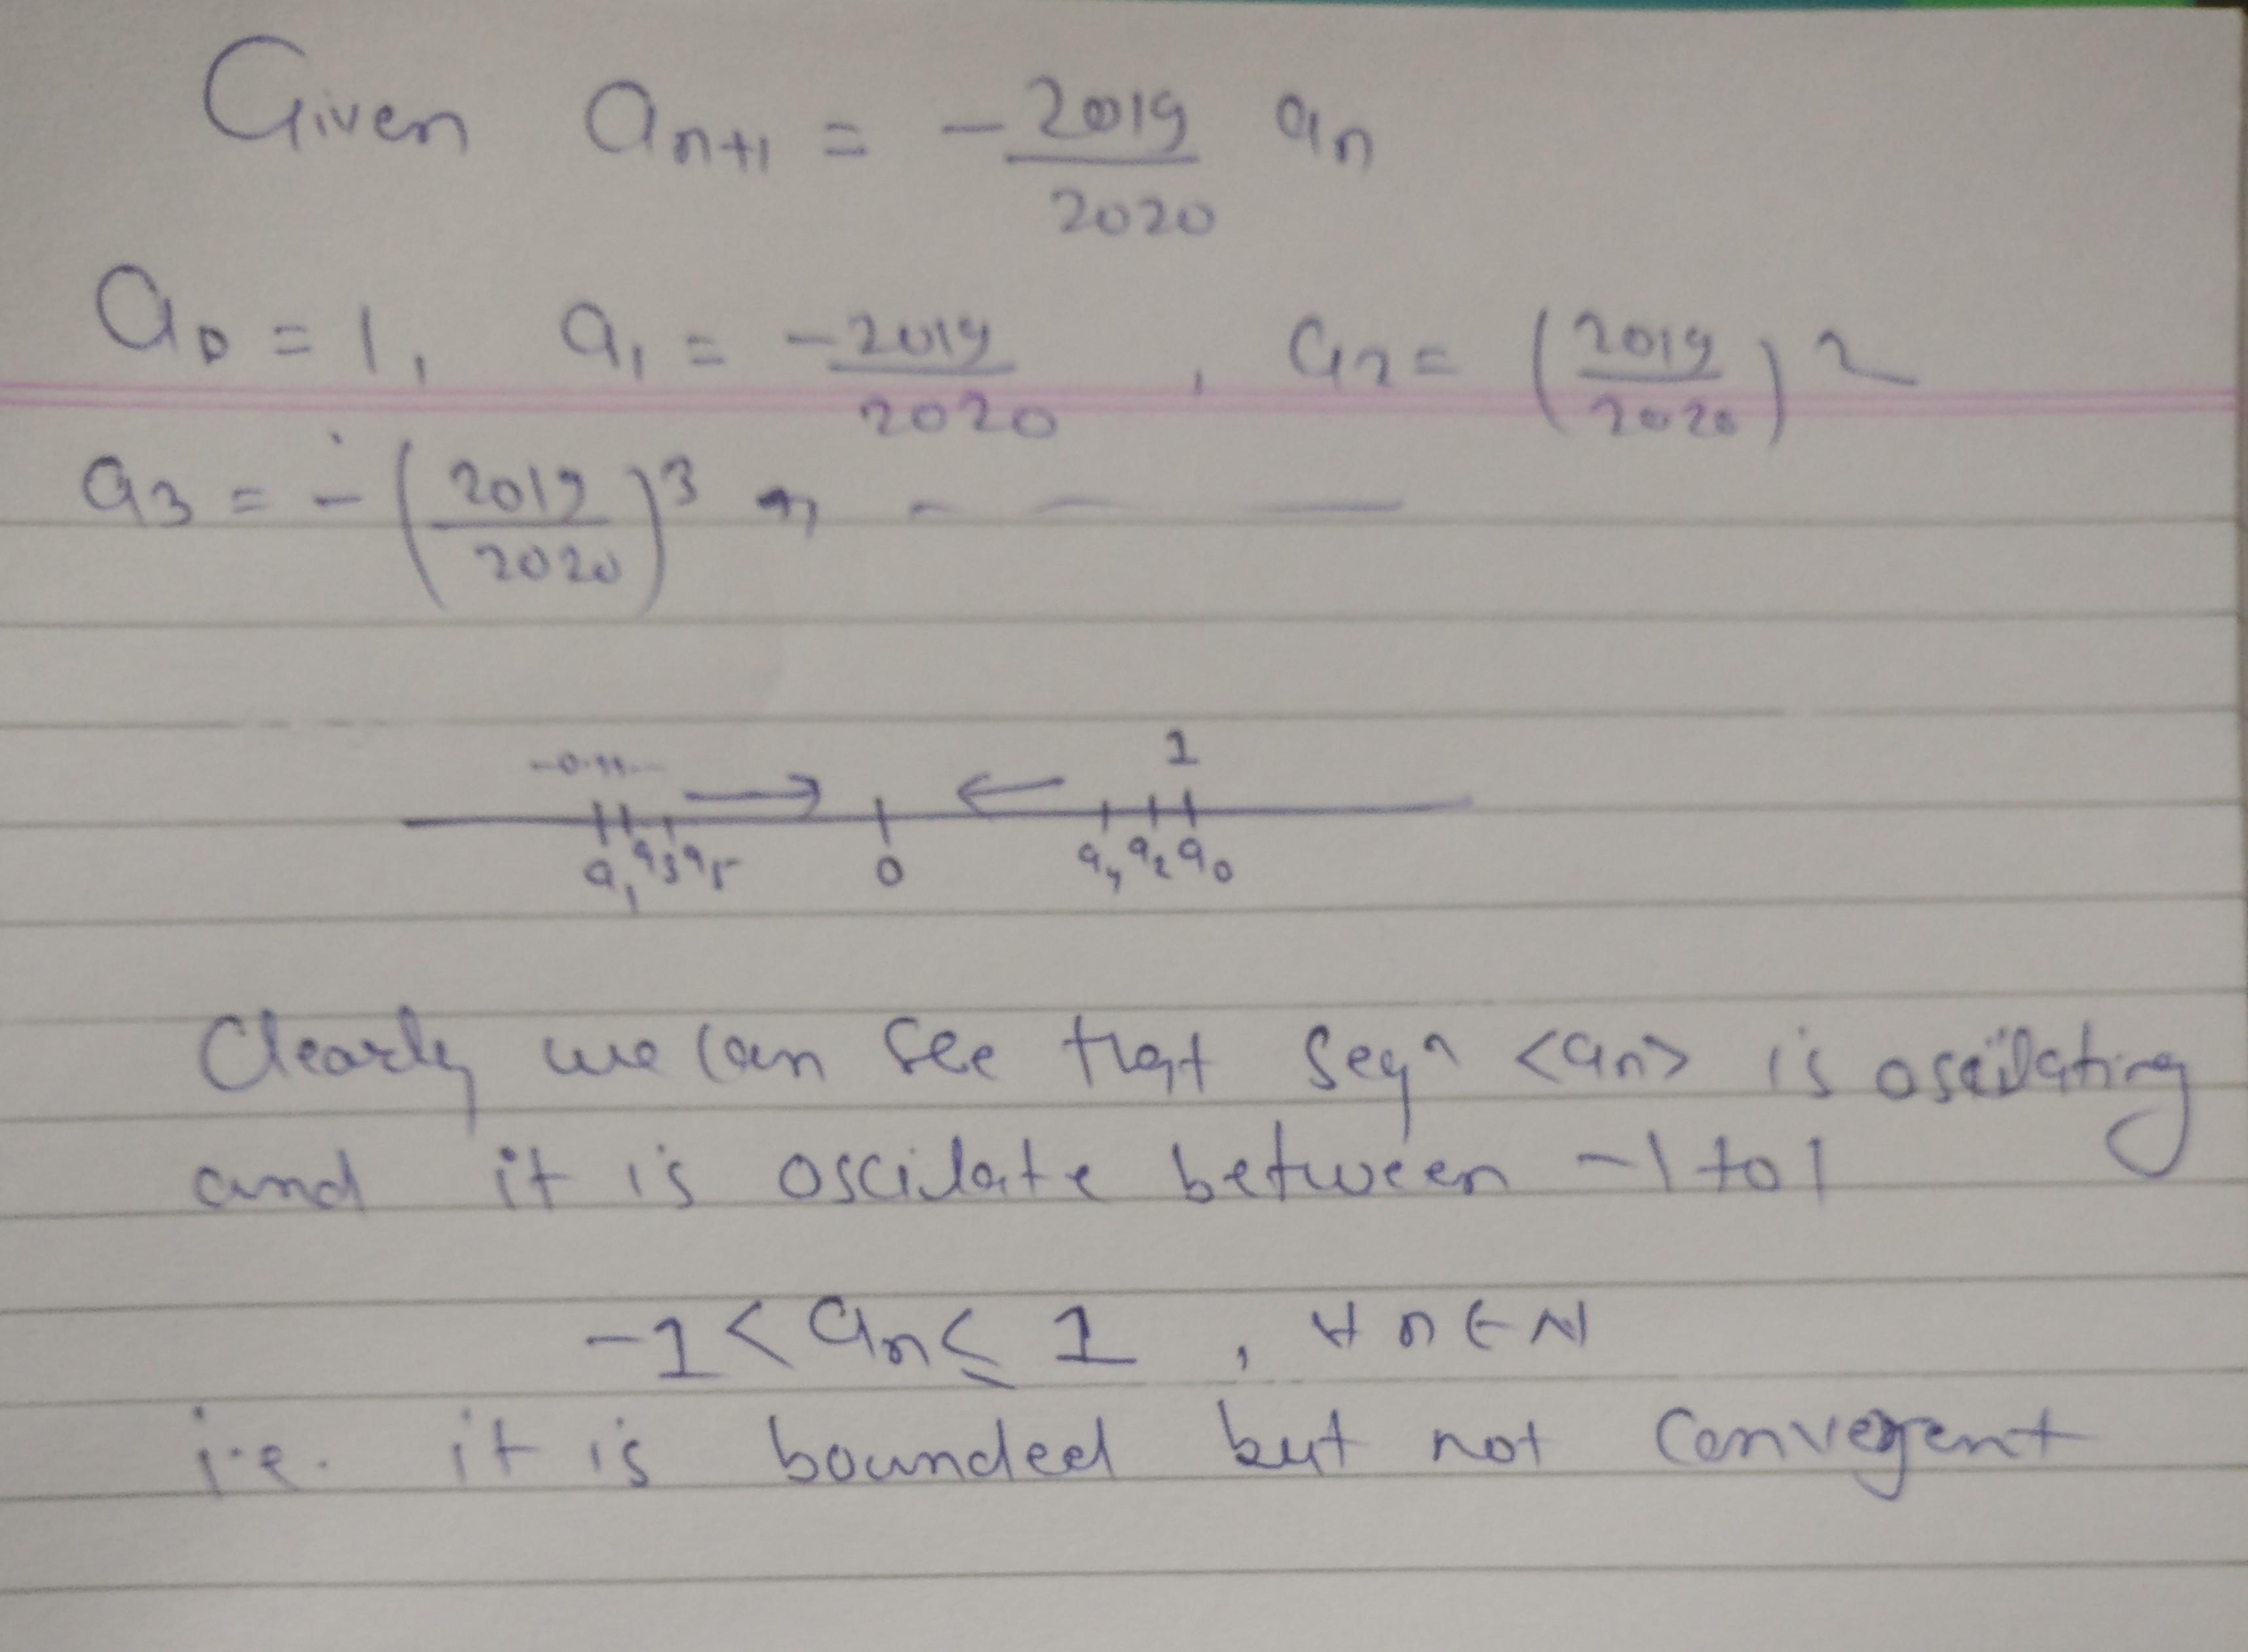 Given a_{n+1} = -2019/2020 a_n
a_0 = 1, a_1 = -2019/2020, a_2 = (2019/2020)^2
a_3 = -(2019/2020)^3 , - - -
-0.99... 1
a_1 a_3 a_5 0 a_4 a_2 a_0
Clearly we can see that seqn <an> is oscillating
and it is oscilate between -1 to 1
-1 < a_n ≤ 1 , ∀ n ∈ N
i.e. it is bounded but not convergent